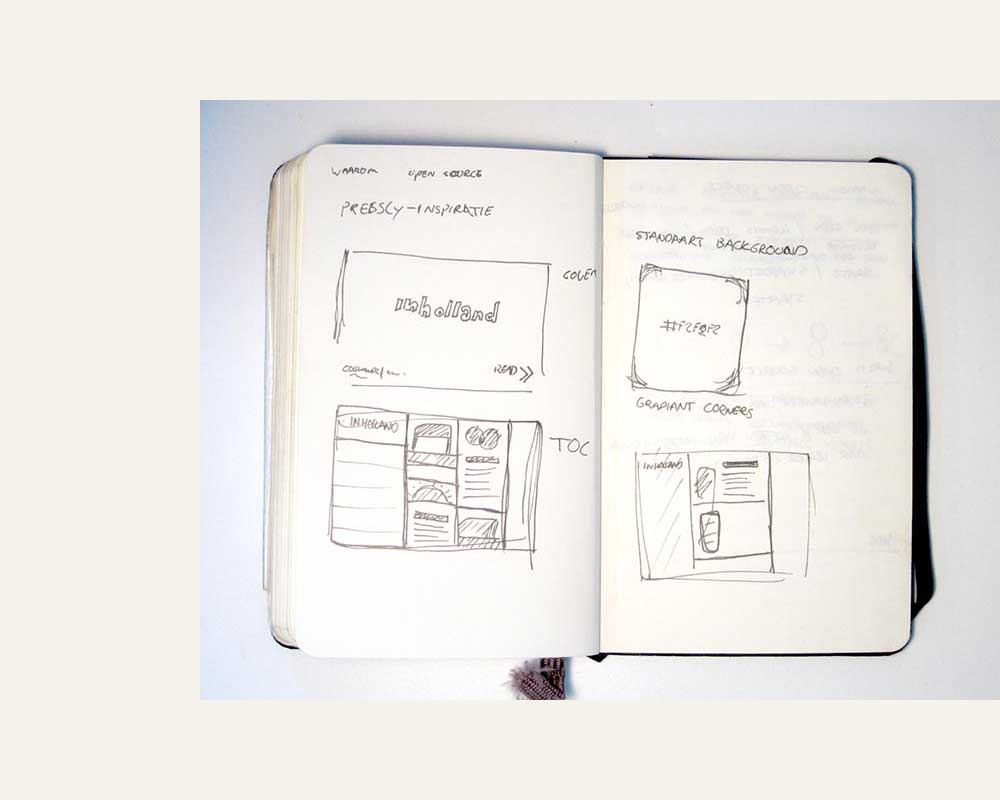 WAAROM OPEN SOURCE
PRESSLY-INSPIRATIE
COVER
inholland
READ >>
INHOLLAND
TOC
STANDAART BACKGROUND
#F2F2F2
GRADIANT CORNERS
INHOLLAND